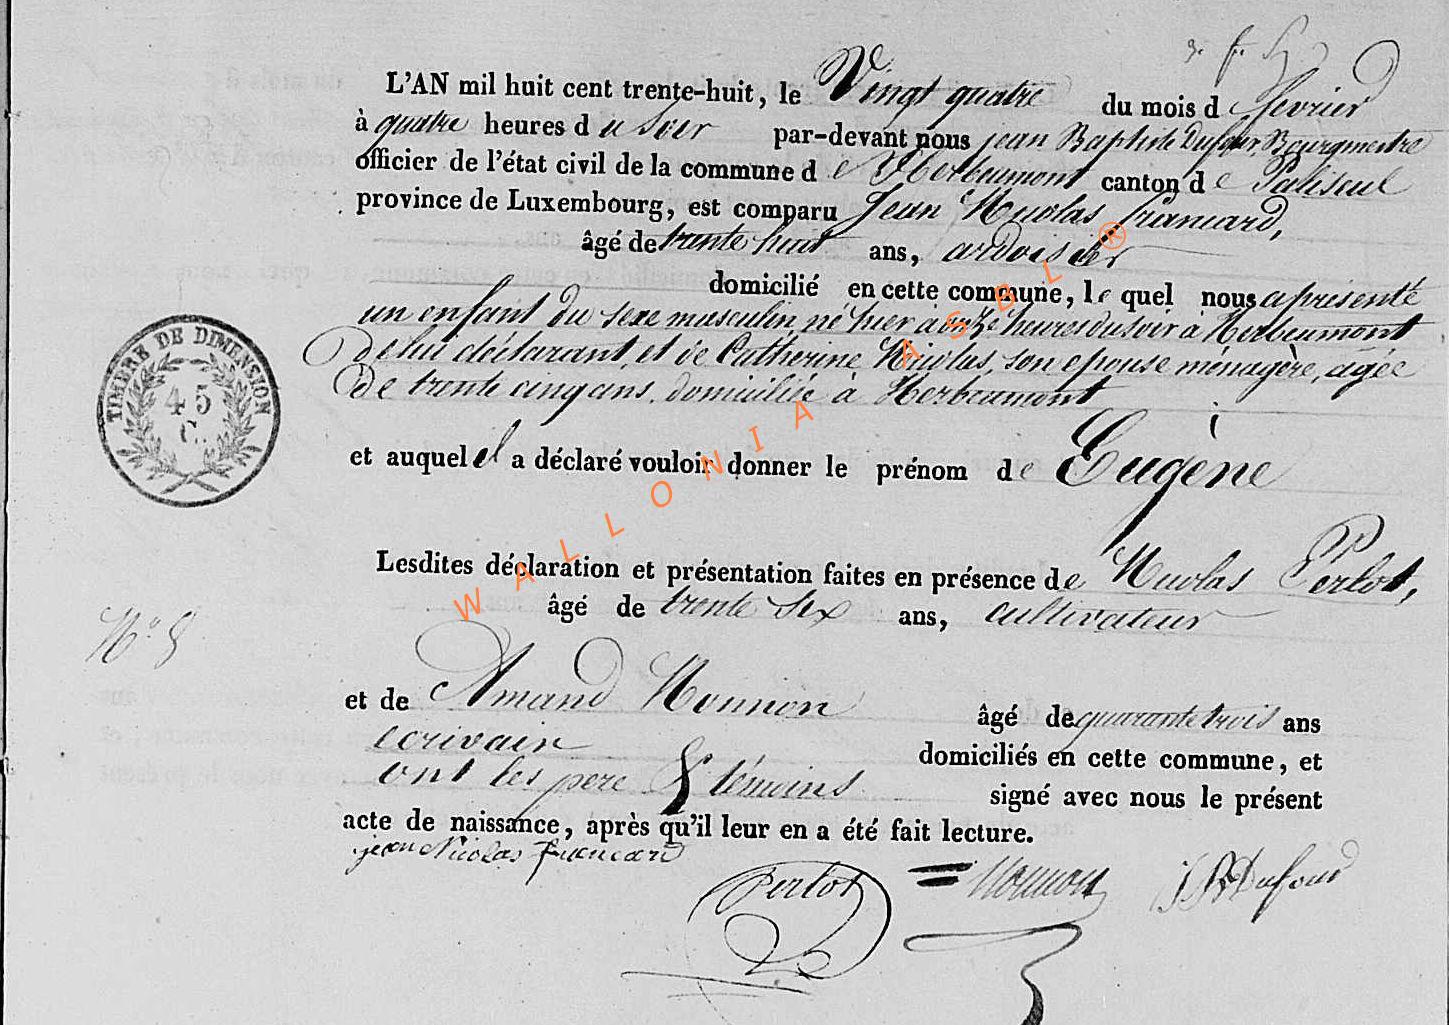 L'AN mil huit cent trente-huit, le Vingt quatre du mois de fevrier
à quatre heures du Soir par-devant nous jean Baptiste Dufour, Bourgmestre
officier de l'état civil de la commune de Herbeumont canton de Paliseul
province de Luxembourg, est comparu Jean Nicolas francard,
âgé de trente huit ans, ardoisier
domicilié en cette commune, lequel nous a présenté
un enfant du sexe masculin né hier à onze heures du soir à Herbeumont
De lui déclarant, et de Catherine Nicolas, son epouse ménagère, agée
de trente cinq ans, domiciliée à Herbeumont
et auquel il a déclaré vouloir donner le prénom de Eugène
TIMBRE DE DIMENSION
45
C.
Lesdites déclaration et présentation faites en présence de Nicolas Perlot,
âgé de trente six ans, cultivateur
N.° 8
et de Amand Monnon âgé de quarante trois ans
ecrivain domiciliés en cette commune, et
ont les pere & témoins signé avec nous le présent
acte de naissance, après qu'il leur en a été fait lecture.
jean Nicolas francard
Perlot Monnon JB Dufour
WALLONIA ASBL ®